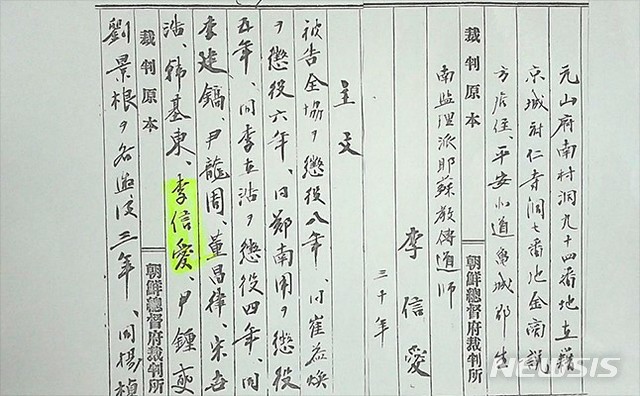 元山府南村洞九十四番地在籍
京城府仁寺洞七番地金商説
方居住、平安北道亀城郡生
裁判原本
朝鮮總督府裁判所
南監理派耶蘇教傳道師
李信愛
三十年
主文
被告全協ヲ懲役八年、同崔益煥
ヲ懲役六年、同鄭南用ヲ懲役
五年、同李在浩ヲ懲役四年、同
李建鎬、尹龍周、董昌律、宋世
浩、韓基東、李信愛、尹鍾奭
劉景根ヲ各懲役三年、同楊楨
裁判原本
朝鮮總督府裁判所
NEWSIS